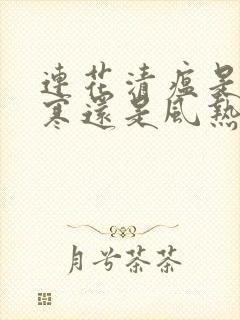 連花清瘟是
寒還是風熱
月兮茶茶